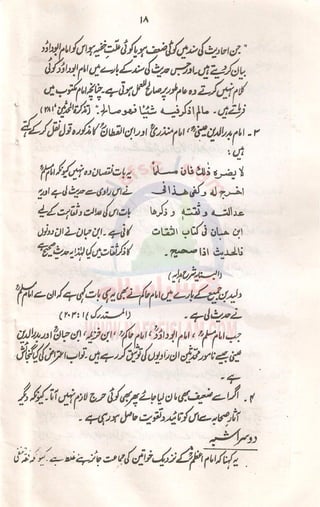 ۱۸
"جن احادیث کی سند میں کوئی ضعف ہو یا کوئی علت خفیہ ہو اس کو امام ابوداؤد
بیان کر دیتے ہیں اور جس حدیث کی سند کے بارے میں امام ابوداؤد کوئی
کلام نہیں کرتے وہ عام طور پر صالح للعمل ہوتی ہے چنانچہ امام مکتوب میں
فرماتے ہیں۔ مالم اذکر فیہ شیئا فھو صالح۔"
۳۔ امام بدرالدین عینیؒ، امام منذریؒ اور ابن القطانؒ کا مذکورہ قول نقل کر کے کہتے
ہیں:
لا یضرہ ذلک فان مسلماً
اخرج لہ و کفی ھذا فی
عدالتہ و ثقتہ و ذکرھا
ابن حبان فی کتاب الثقات
فالحدیث اذا صحیح۔
یہ بات نقصان دہ نہیں کیونکہ امام مسلمؒ
نے اس راوی سے حدیث لی ہے اور یہ
بات اس کی عدالت و ثقاہت کے لیے
کافی ہے۔ ابن حبان نے ان دونوں
کا ذکر ثقات میں کیا لہٰذا یہ حدیث صحیح ہے۔
ولید بن جمیع کے بارے میں امام حاکم نے بھی یہی بات کہی ہے کہ ان سے امام مسلمؒ
نے حدیث لی ہے۔ (المستدرک ۱:۲۰۳)
جب امام مسلمؒ، امام ابوداؤدؒ، امام حاکمؒ، ابن خزیمہؒ، ابن حبانؒ اور بدرالدین
عینی جیسے نامور محدثین ان راویوں کی توثیق کر رہے ہیں۔ تو اب اعتراض کی کیا گنجائش
ہے۔
۴۔ اگر اسے ضعیف بھی مان لیا جائے پھر بھی کوئی حرج لازم نہیں آتا۔ کیونکہ دیگر
آثار صحابہ سے اس کو تائید و تقویت حاصل ہو رہی ہے۔
دوسرا شبہ
یہ کہنا کہ امام اعظمؒ کے نزدیک خواتین کی جماعت جائز ہے غلط ہے۔ کیونکہ